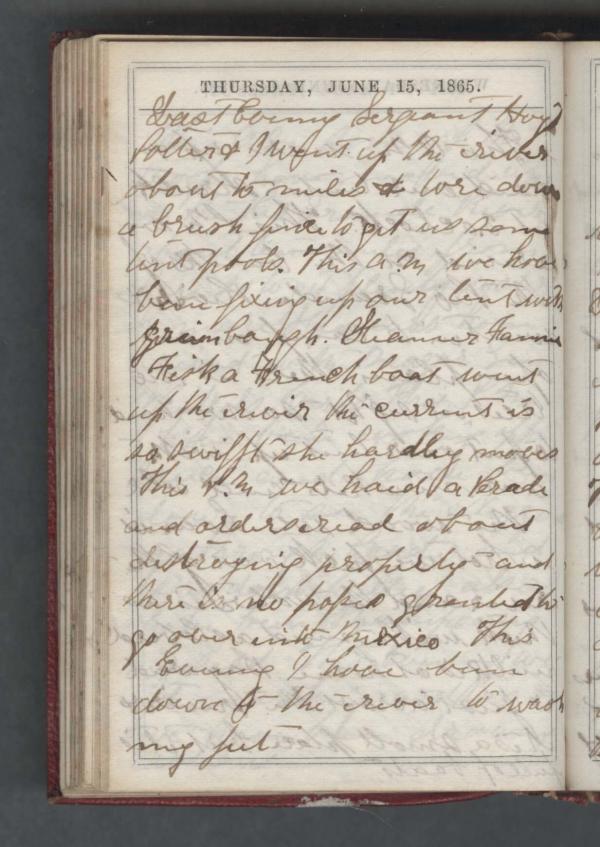 THURSDAY, JUNE 15, 1865.
Last Evening Sergeant Hoyt
Potter & I went up the river
about to miles & tore down
a brush fixe to get us some
tent poots. This a.m we have
been fixing up our tent with
Steamer Fannie
Fisk a French boat went
up the reivir the current is
so swifft she hardley moves
This P.M we haid a Perade
and orders read about
destroying property and
there is no papes granted to
go over into Mexico This
Evening I have been
down to the reivir to wash
my feet